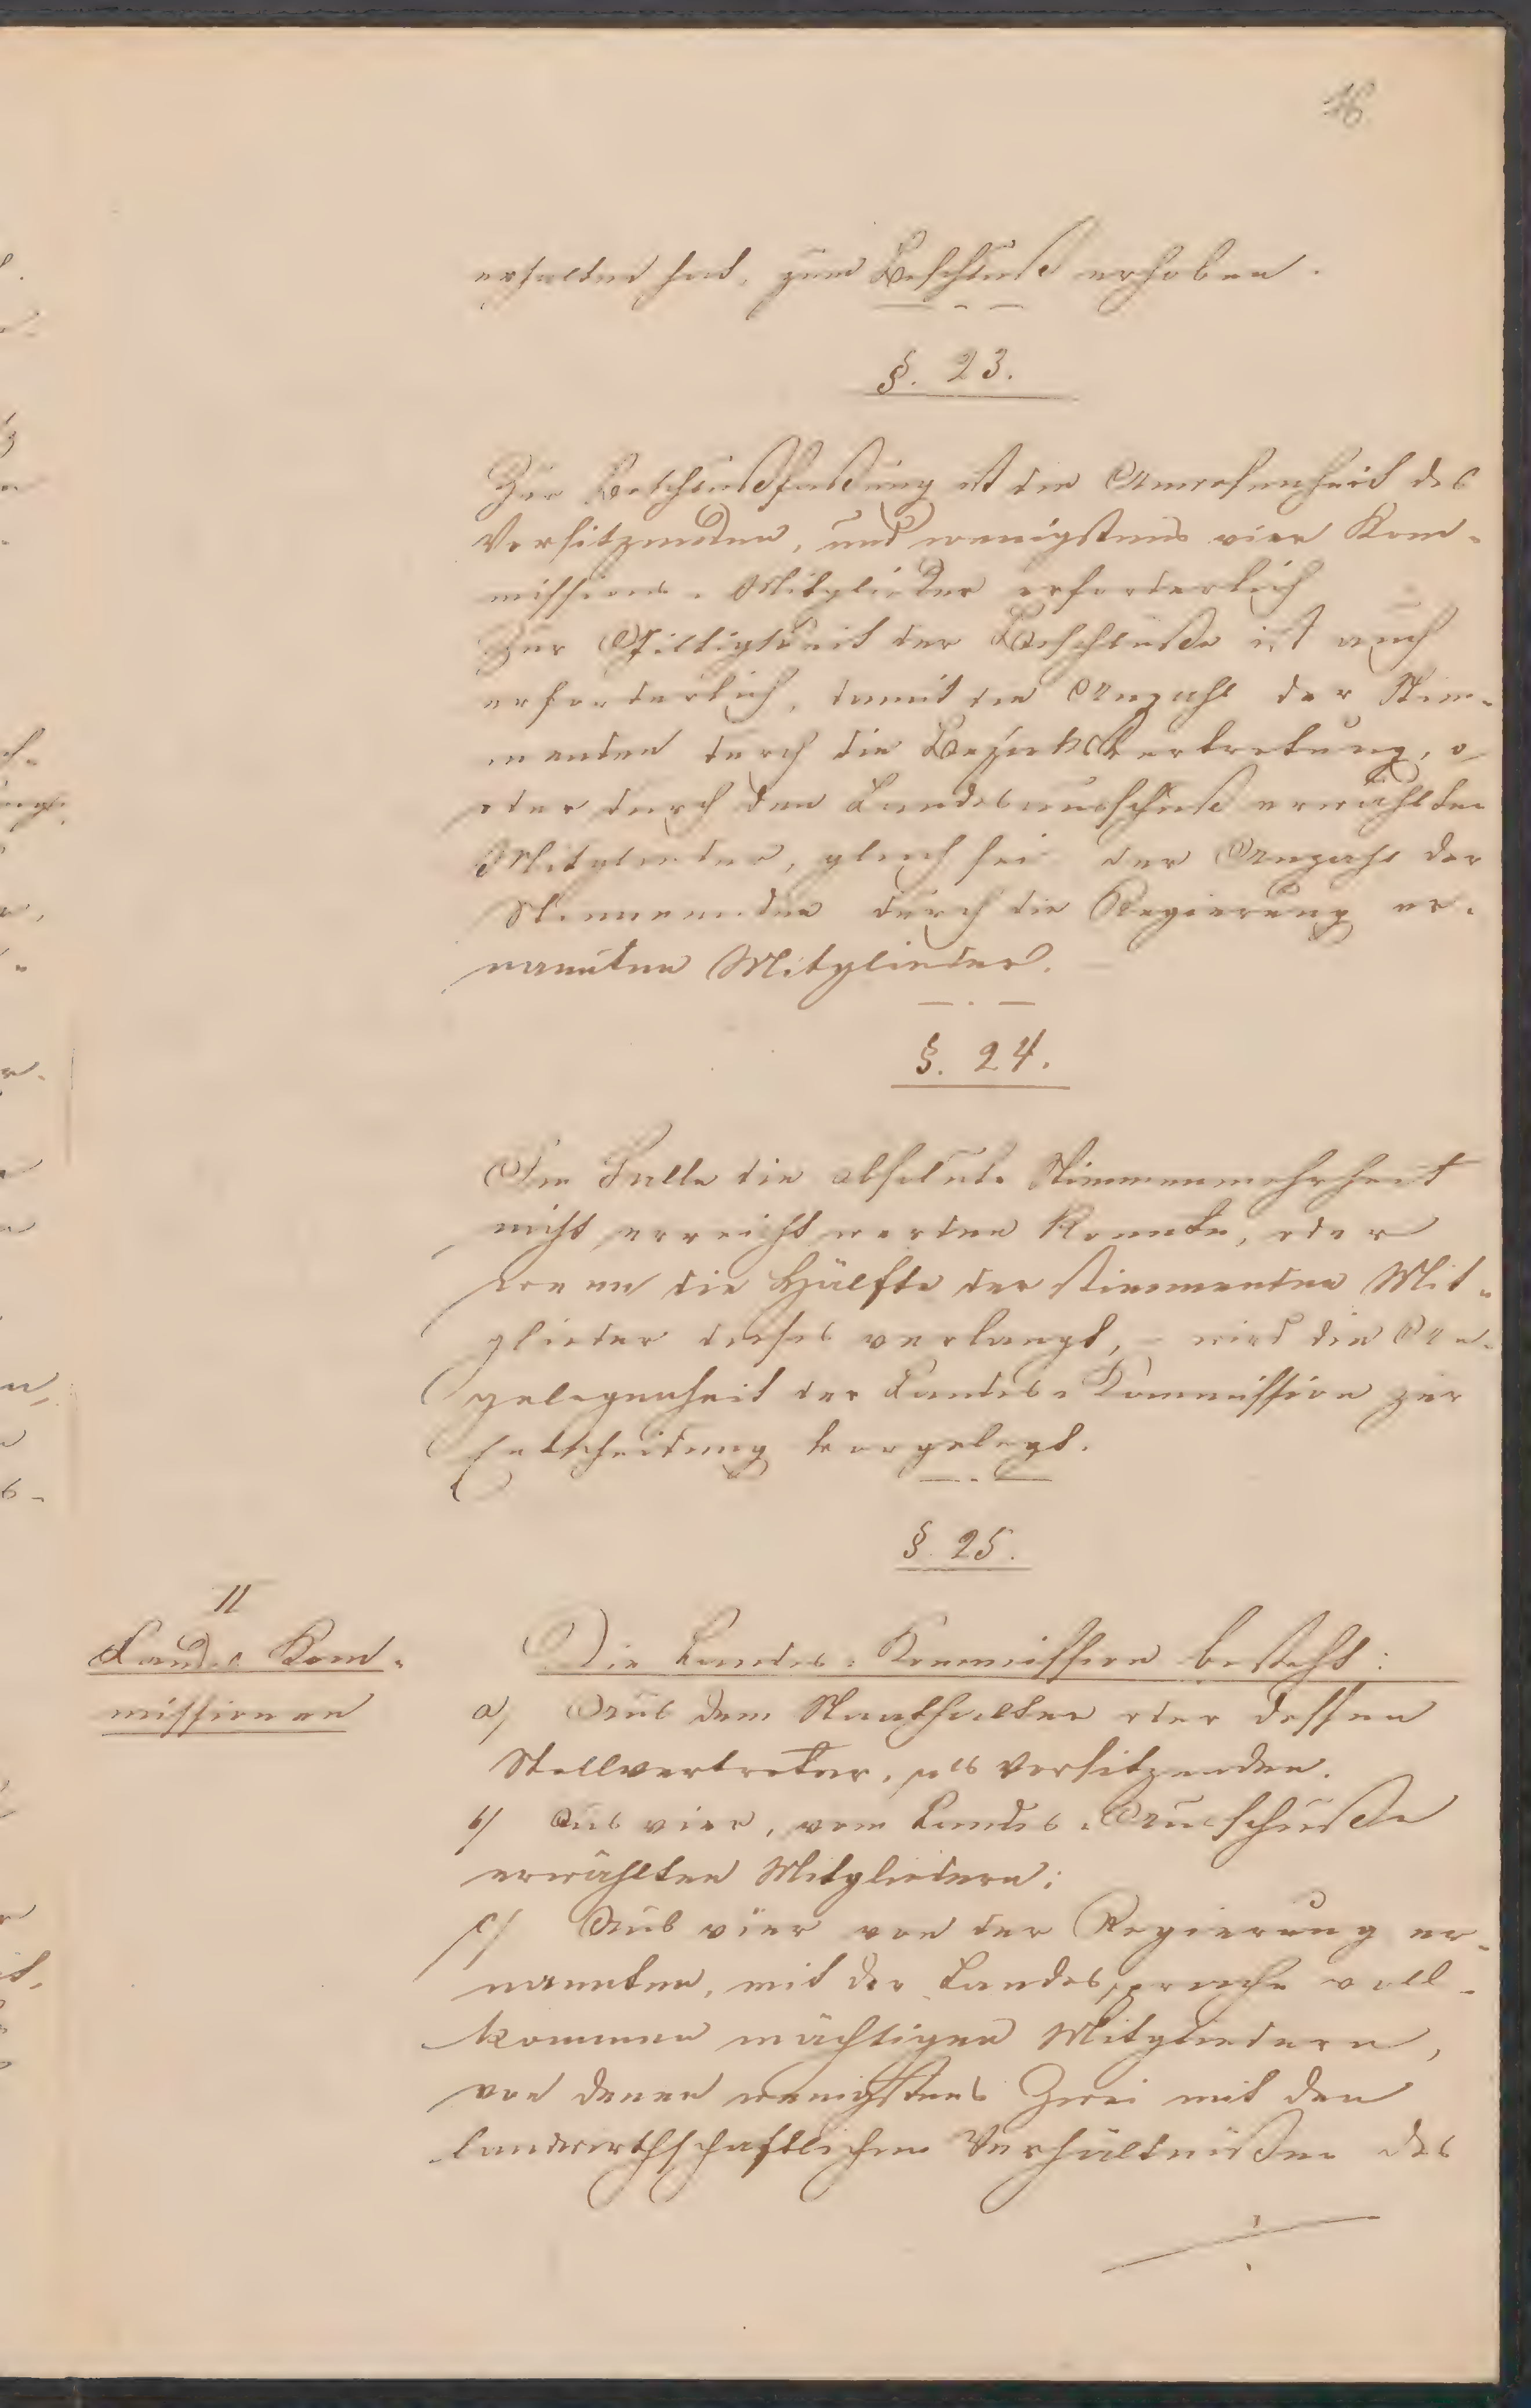 16
erhalten hat, zum Beschluße erhoben.
§. 23.
Zur Beschlußfaßung ist die Anwesenheit des
Vorsitzenden, und wenigstens vier Kom-
missions-Mitglieder erforderlich
Zur Giltigkeit der Beschluße ist auch
erforderlich, damit die Anzahl der Stim-
menden durch die Bezirksvertretung, o
oder durch den Landesausschuß erwählten
Mitglieder, gleich sei der Anzahl der
Stimmenden durch die Regierung er-
nannten Mitglieder.
§. 24.
Im Falle die absolute Stimmenmehrheit
nicht erreicht werden konnte, oder
wenn die Hälfte der stimmenden Mit-
glieder dieses verlangt, – wird die An-
gelegenheit der Landes-Commission zur
Entscheidung vorgelegt.
§. 25.
II
Landes Kom-
missionen
Die Landes-Kommission besteht:
a) Aus dem Statthalter oder dessen
Stellvertreter, als Vorsitzenden.
b) Aus vier, vom Landes-Ausschuße
erwählten Mitgliedern;
c) Aus vier von der Regierung er-
nannten, mit der Landessprache voll-
kommen mächtigen Mitgliedern,
von denen wenigstens Zwei mit den
landwirthschaftlichen Verhältnißen des